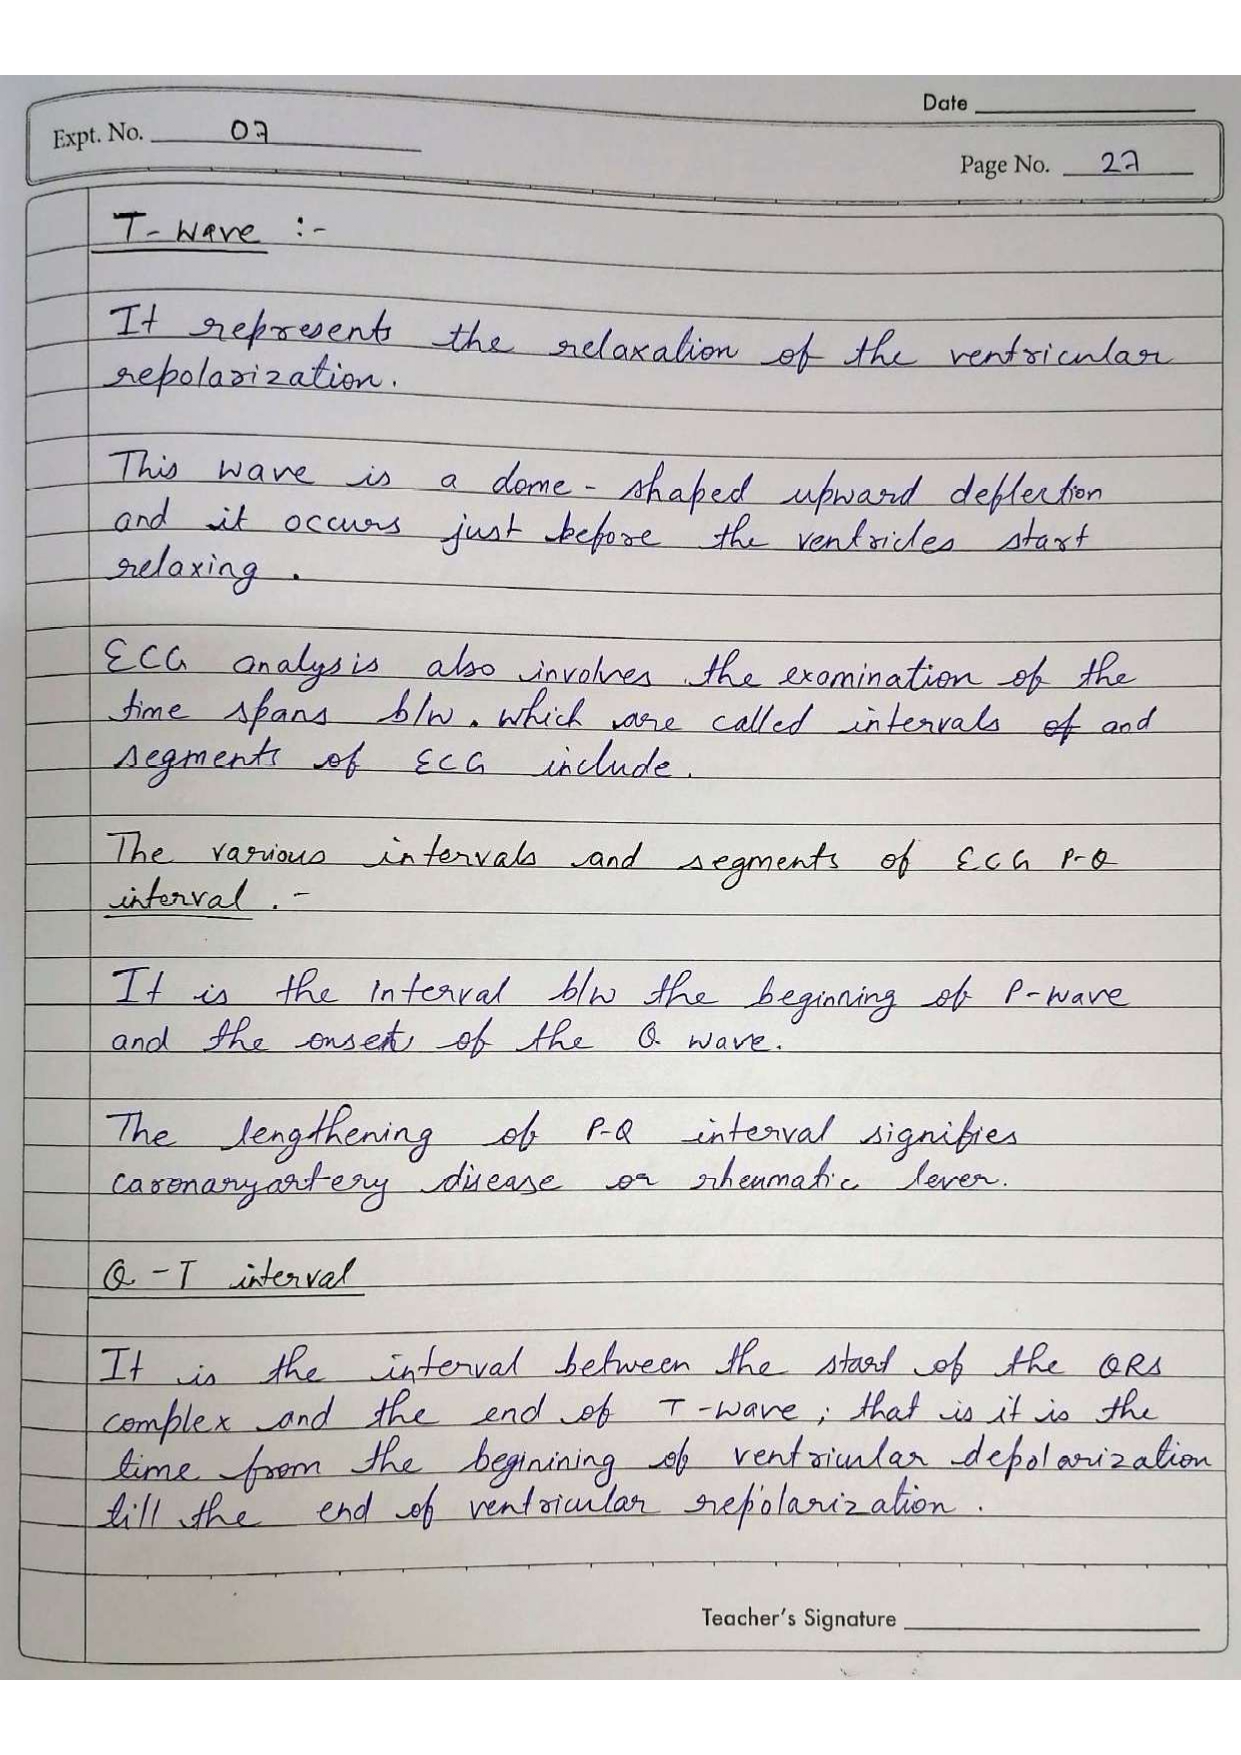 Date
Expt. No. 07
Page No. 27
T-wave :-
It represents the relaxation of the ventricular
repolarization.
This wave is a dome-shaped upward deflection
and it occurs just before the ventricles start
relaxing.
ECG analysis also involves the examination of the
time spans b/w. which are called intervals of and
segments of ECG include.
The various intervals and segments of ECG P-Q
interval.-
It is the interval b/w the beginning of P-wave
and the onset of the Q wave.
The lengthening of P-Q interval signifies
coronaryartery disease or rheumatic lever.
Q-T interval
It is the interval between the start of the QRS
complex and the end of T-wave; that is it is the
time from the beginining of ventricular depolarization
till the end of ventricular repolarization.
Teacher's Signature